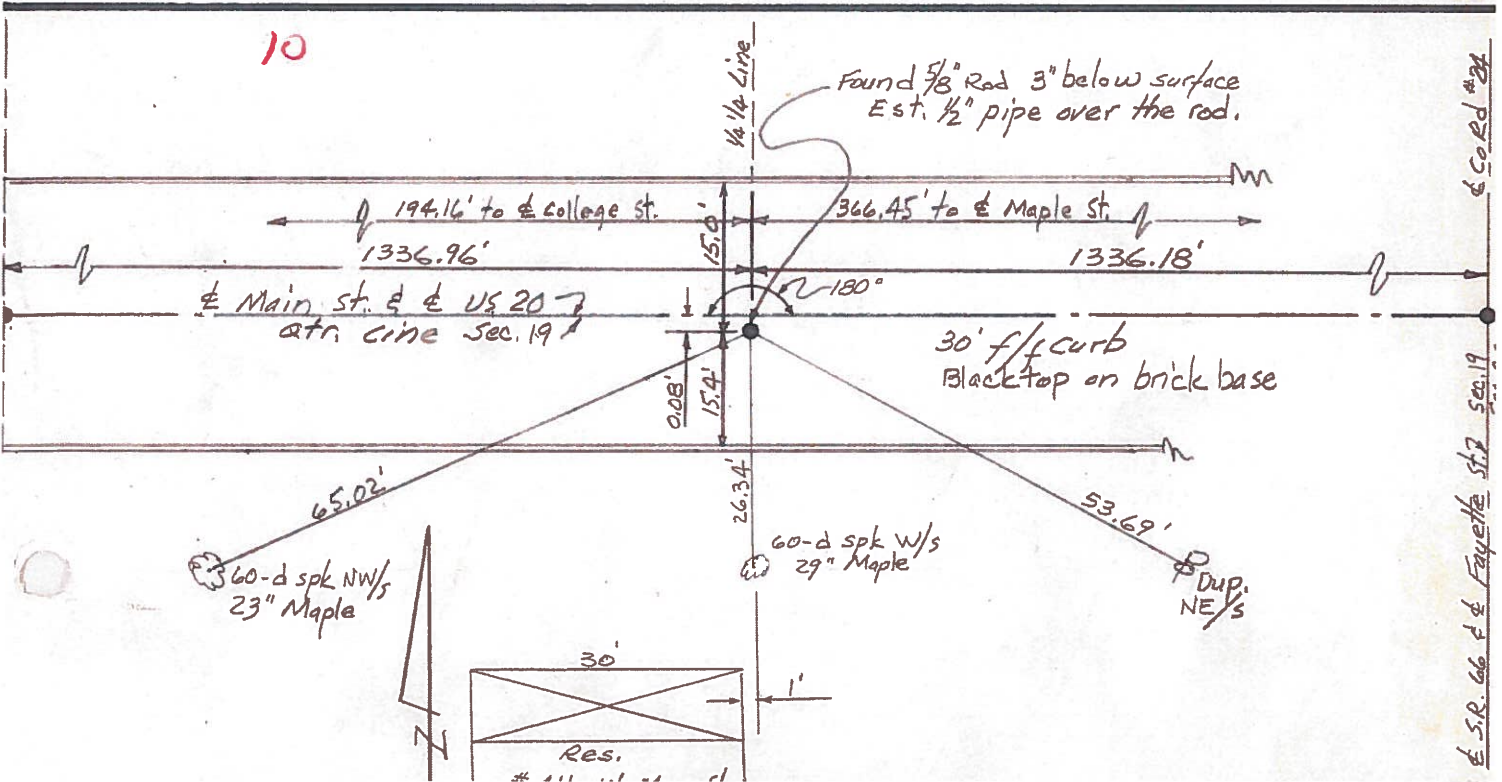 10
1/4 1/4 Line
Found 5/8" Rod 3" below surface
Est. 1/2" pipe over the rod.
℄ Co Rd #24
194.16' to ℄ College St.
366.45' to ℄ Maple St.
15.0'
1336.96'
1336.18'
180°
℄ Main St. & ℄ US 20
Qtr. Line Sec. 19
30' f/f curb
Blacktop on brick base
0.08'
15.4'
65.02'
26.34'
53.69'
60-d spk NW/s
23" Maple
60-d spk W/s
29" Maple
Dup.
NE/s
N
30'
1'
Res.
℄ S.R. 66 & ℄ Fayette St.
Sec. 19